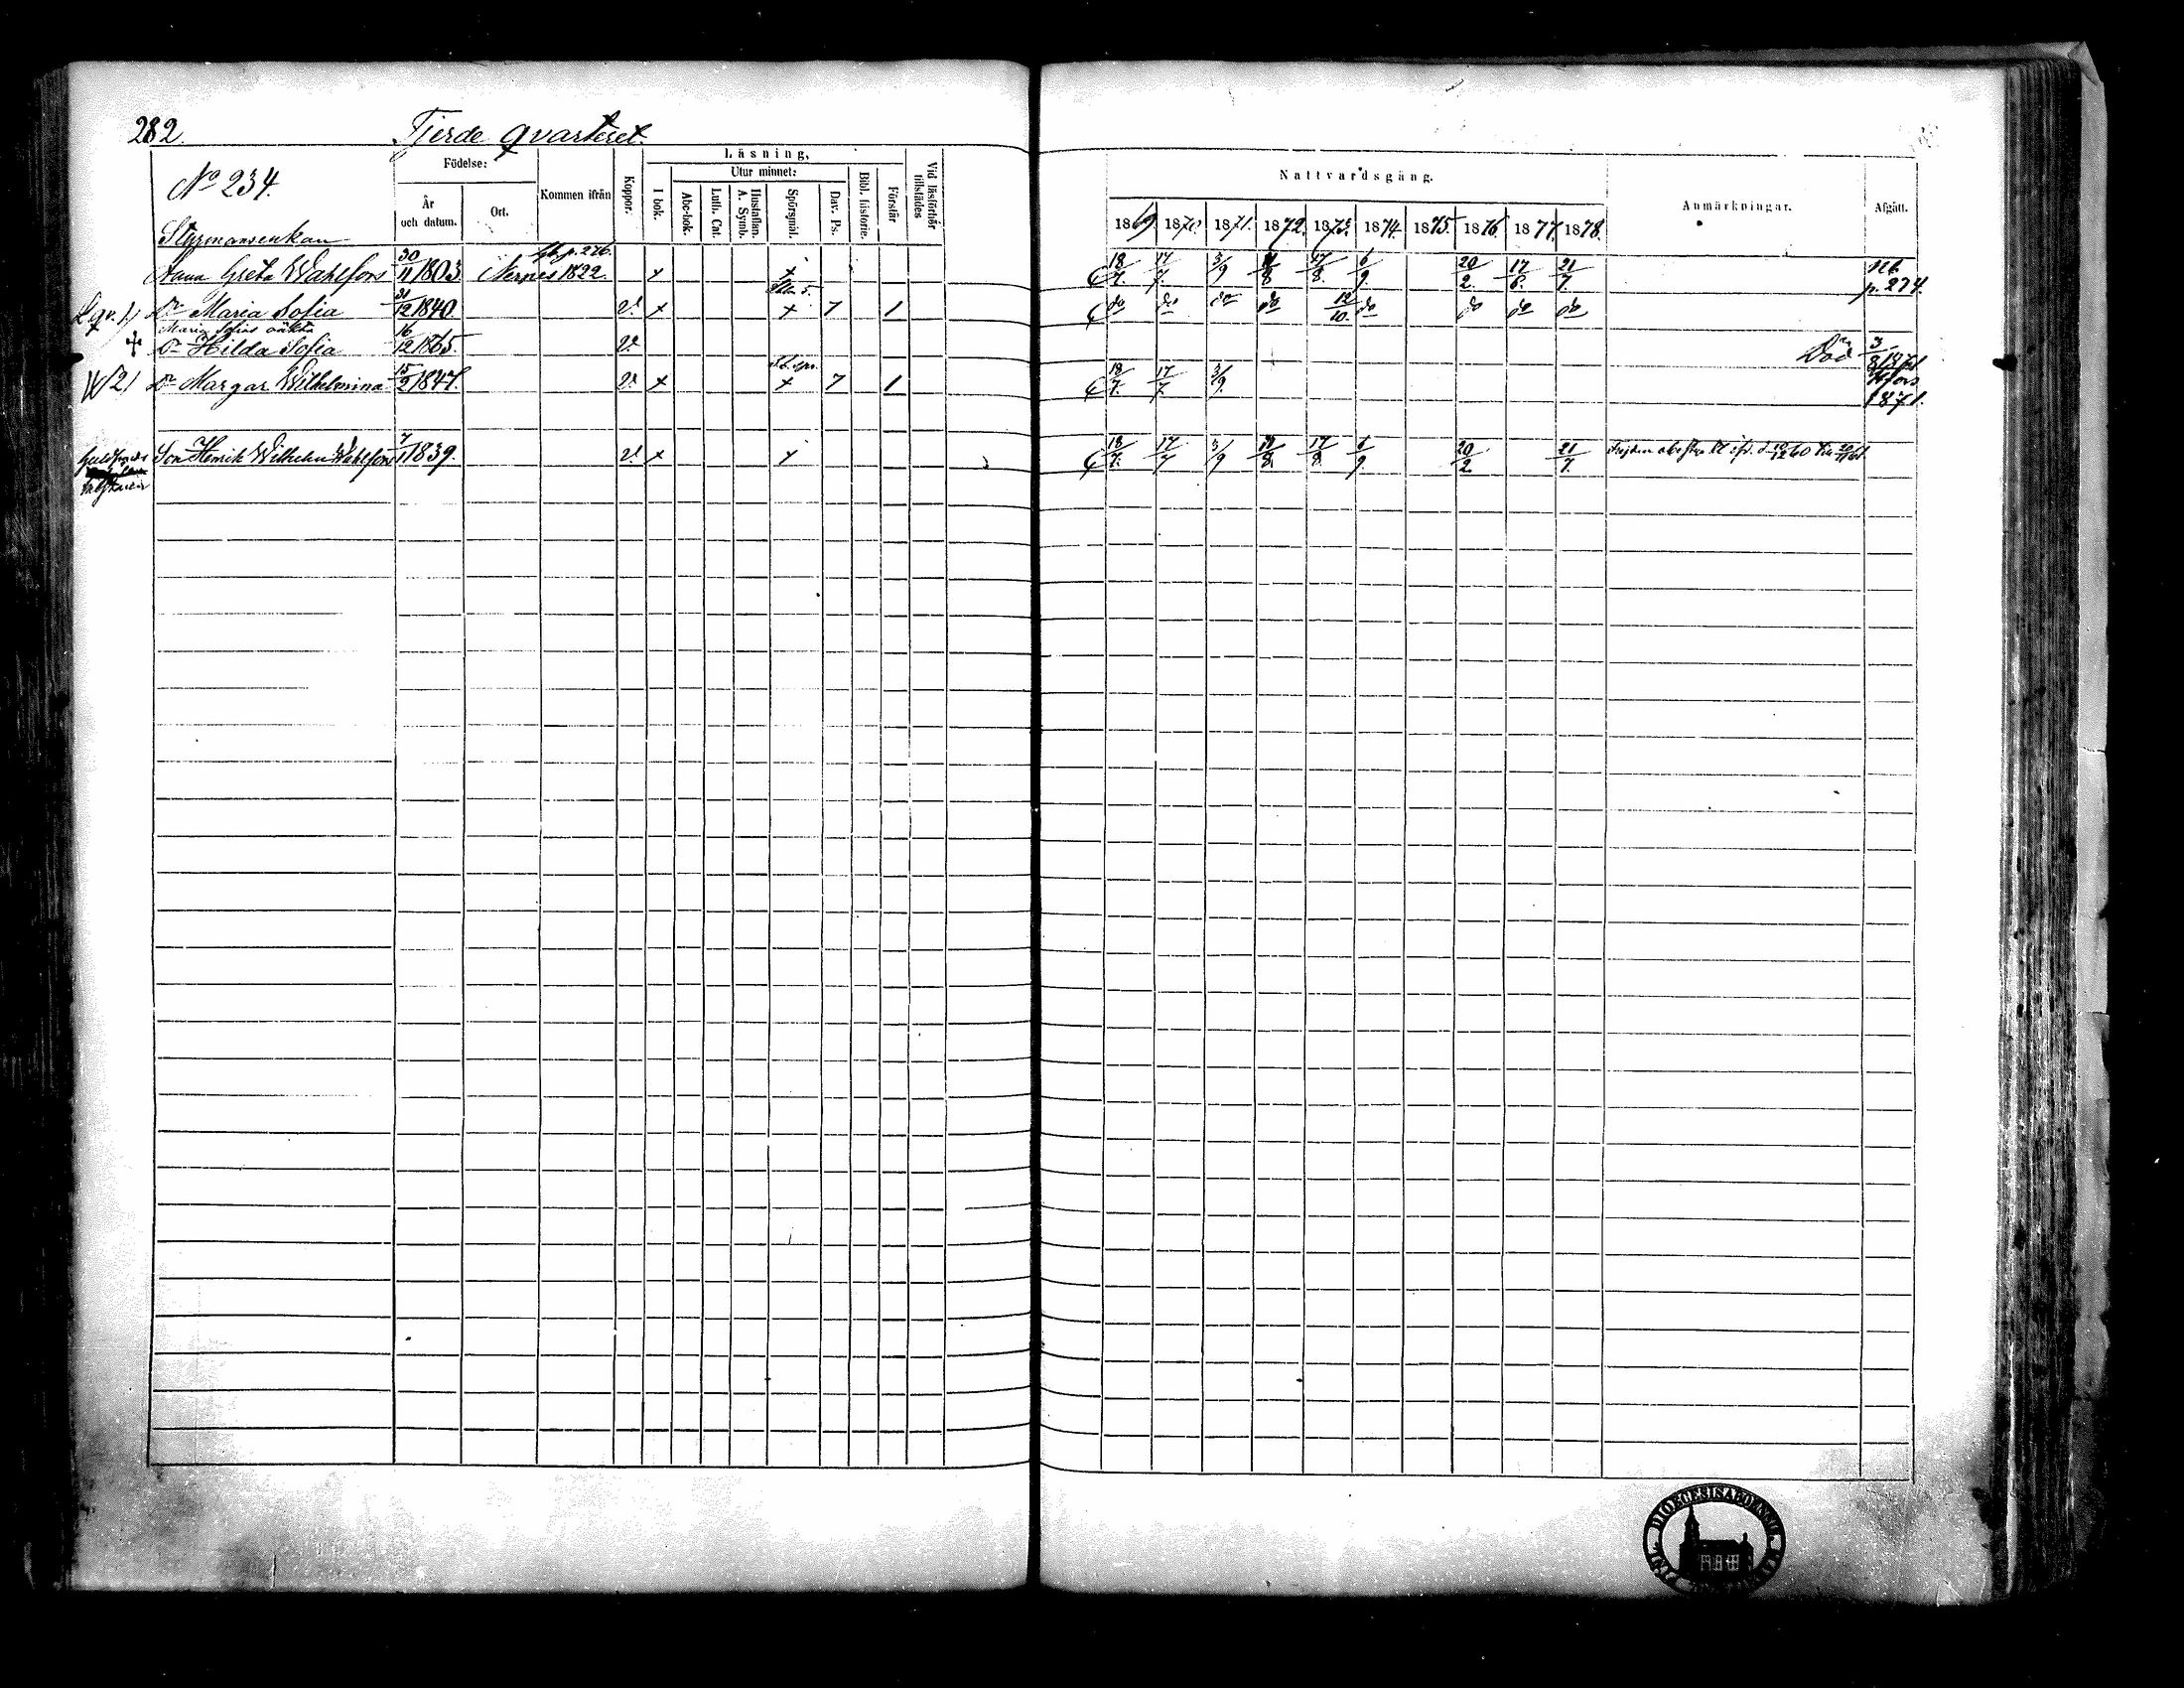 282. Fjerde qvarteret.
No 234.
Födelse:
År och datum.
Ort.
Kommen ifrån
Koppor.
Läsning.
I bok.
Utur minnet:
Abc-bok.
Luth. Cat.
Hustaflan. A. Symb.
Spörsmål.
Dav. Ps.
Bibl. historie.
Förstår
Vid läsförhör tillstädes
Nattvardsgång.
1869. 1870. 1871. 1872. 1873. 1874. 1875. 1876. 1877. 1878.
Anmärkningar.
Afgått.
Styrmansenkan
Anna Greta Wahlfors 30/11 1803. Nerpes 1822. p. 276. x x 18/7. 17/7. 3/9 11/8 17/8. 6/9. 20/2. 17/6. 21/7. p. 274.
Dr Maria Sofia 31/12 1840. v. x x 7 1 do do do do 12/10. do do do do
Maria Sofias oäkta
+ Dr Hilda Sofia 16/12 1865. v. Död 3/8 1871
Dr Margar Wilhelmina 15/2 1847. v. x x 7 1 18/7. 17/7. 3/9. Hfors 1871.
Son Henrik Wilhelm Wahlfors 7/1 1839. v. x x 18/7. 17/7 3/9 11/8. 17/8. 6/9. 20/2. 21/7.